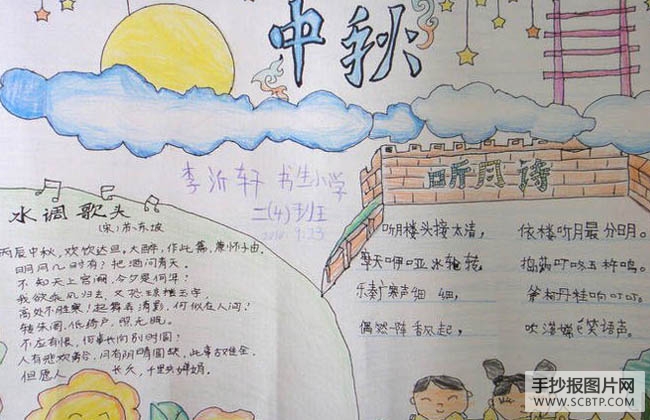 中秋
李沂轩 书生小学
二(4)班
2010 9.23
水调歌头
(宋)苏东坡
丙辰中秋,欢饮达旦,大醉,作此篇,兼怀子由.
明月几时有?把酒问青天.
不知天上宫阙,今夕是何年?
我欲乘风归去,又恐琼楼玉宇,
高处不胜寒!起舞弄清影,何似在人间!
转朱阁,低绮户,照无眠.
不应有恨,何事长向别时圆?
人有悲欢离合,月有阴晴圆缺,此事古难全.
但愿人长久,千里共婵娟.
听月诗
听月楼头接太清,依楼听月最分明.
摩天咿哑冰轮转,捣药叮咚玉杵鸣.
乐奏广寒声细细,斧柯丹桂响叮叮.
偶然一阵香风起,吹落嫦娥笑语声.
手抄报图片网
WWW.SCBTP.COM